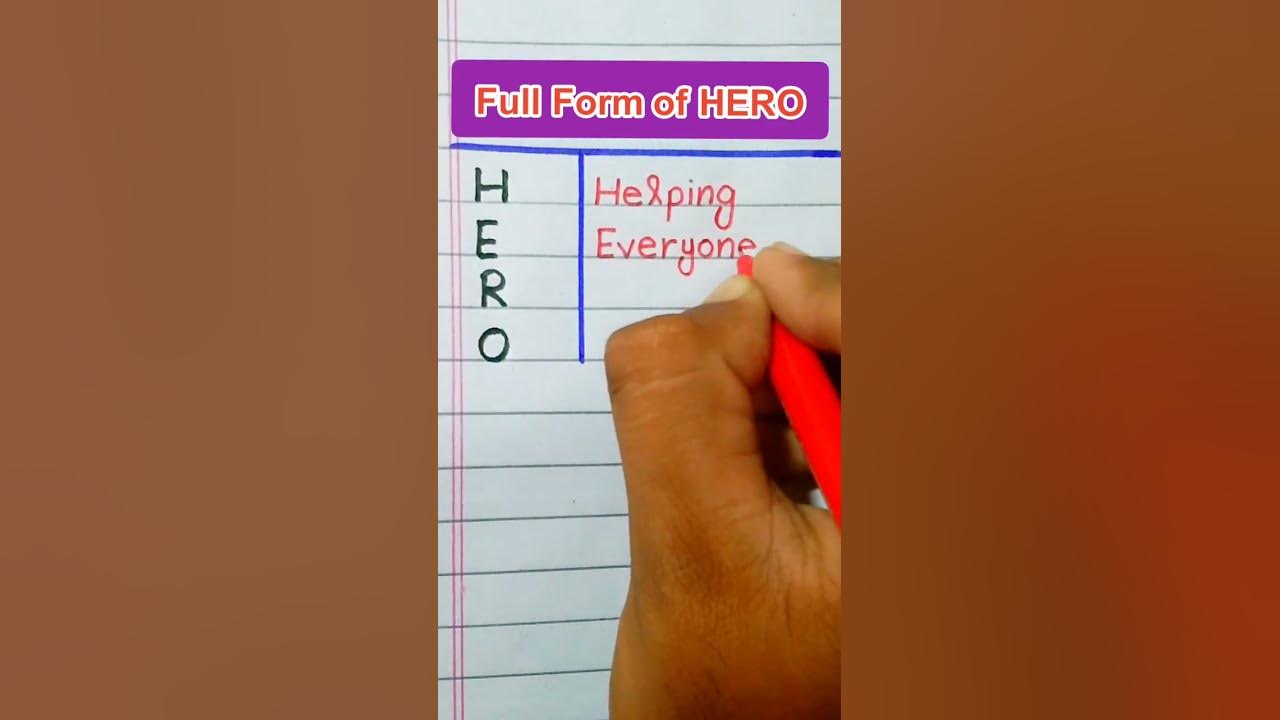 Full Form of HERO
H Helping
E Everyone
R
O